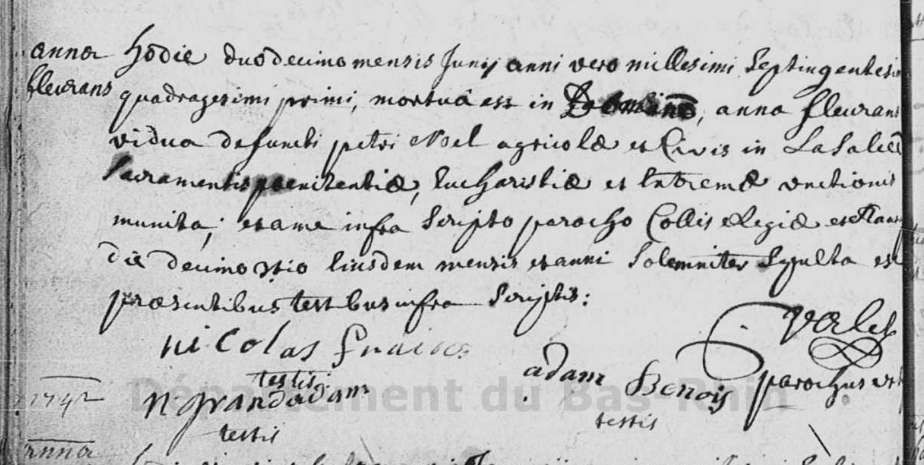 anna fleurans
hodie duodecimo mensis Junij anni vero millesimi Septingentesi
quadragesimi primi, mortua est in Domino, anna fleurans
vidua defuncti petri Noel agricolæ et Civis in LaSalle
Sacramentis pœnitentiæ, Eucharistiæ et Extremæ unctionis
munita; et a me infra Scripto parocho Collis Regiæ
die decimo 3tio Eiusdem mensis et anni Solemniter Sepulta est
præsentibus testibus infra Scriptis:
nicolas
testis
N grandadam
testis
adam Benois
testis
parochus
1742
anna
Département du Bas-Rhin